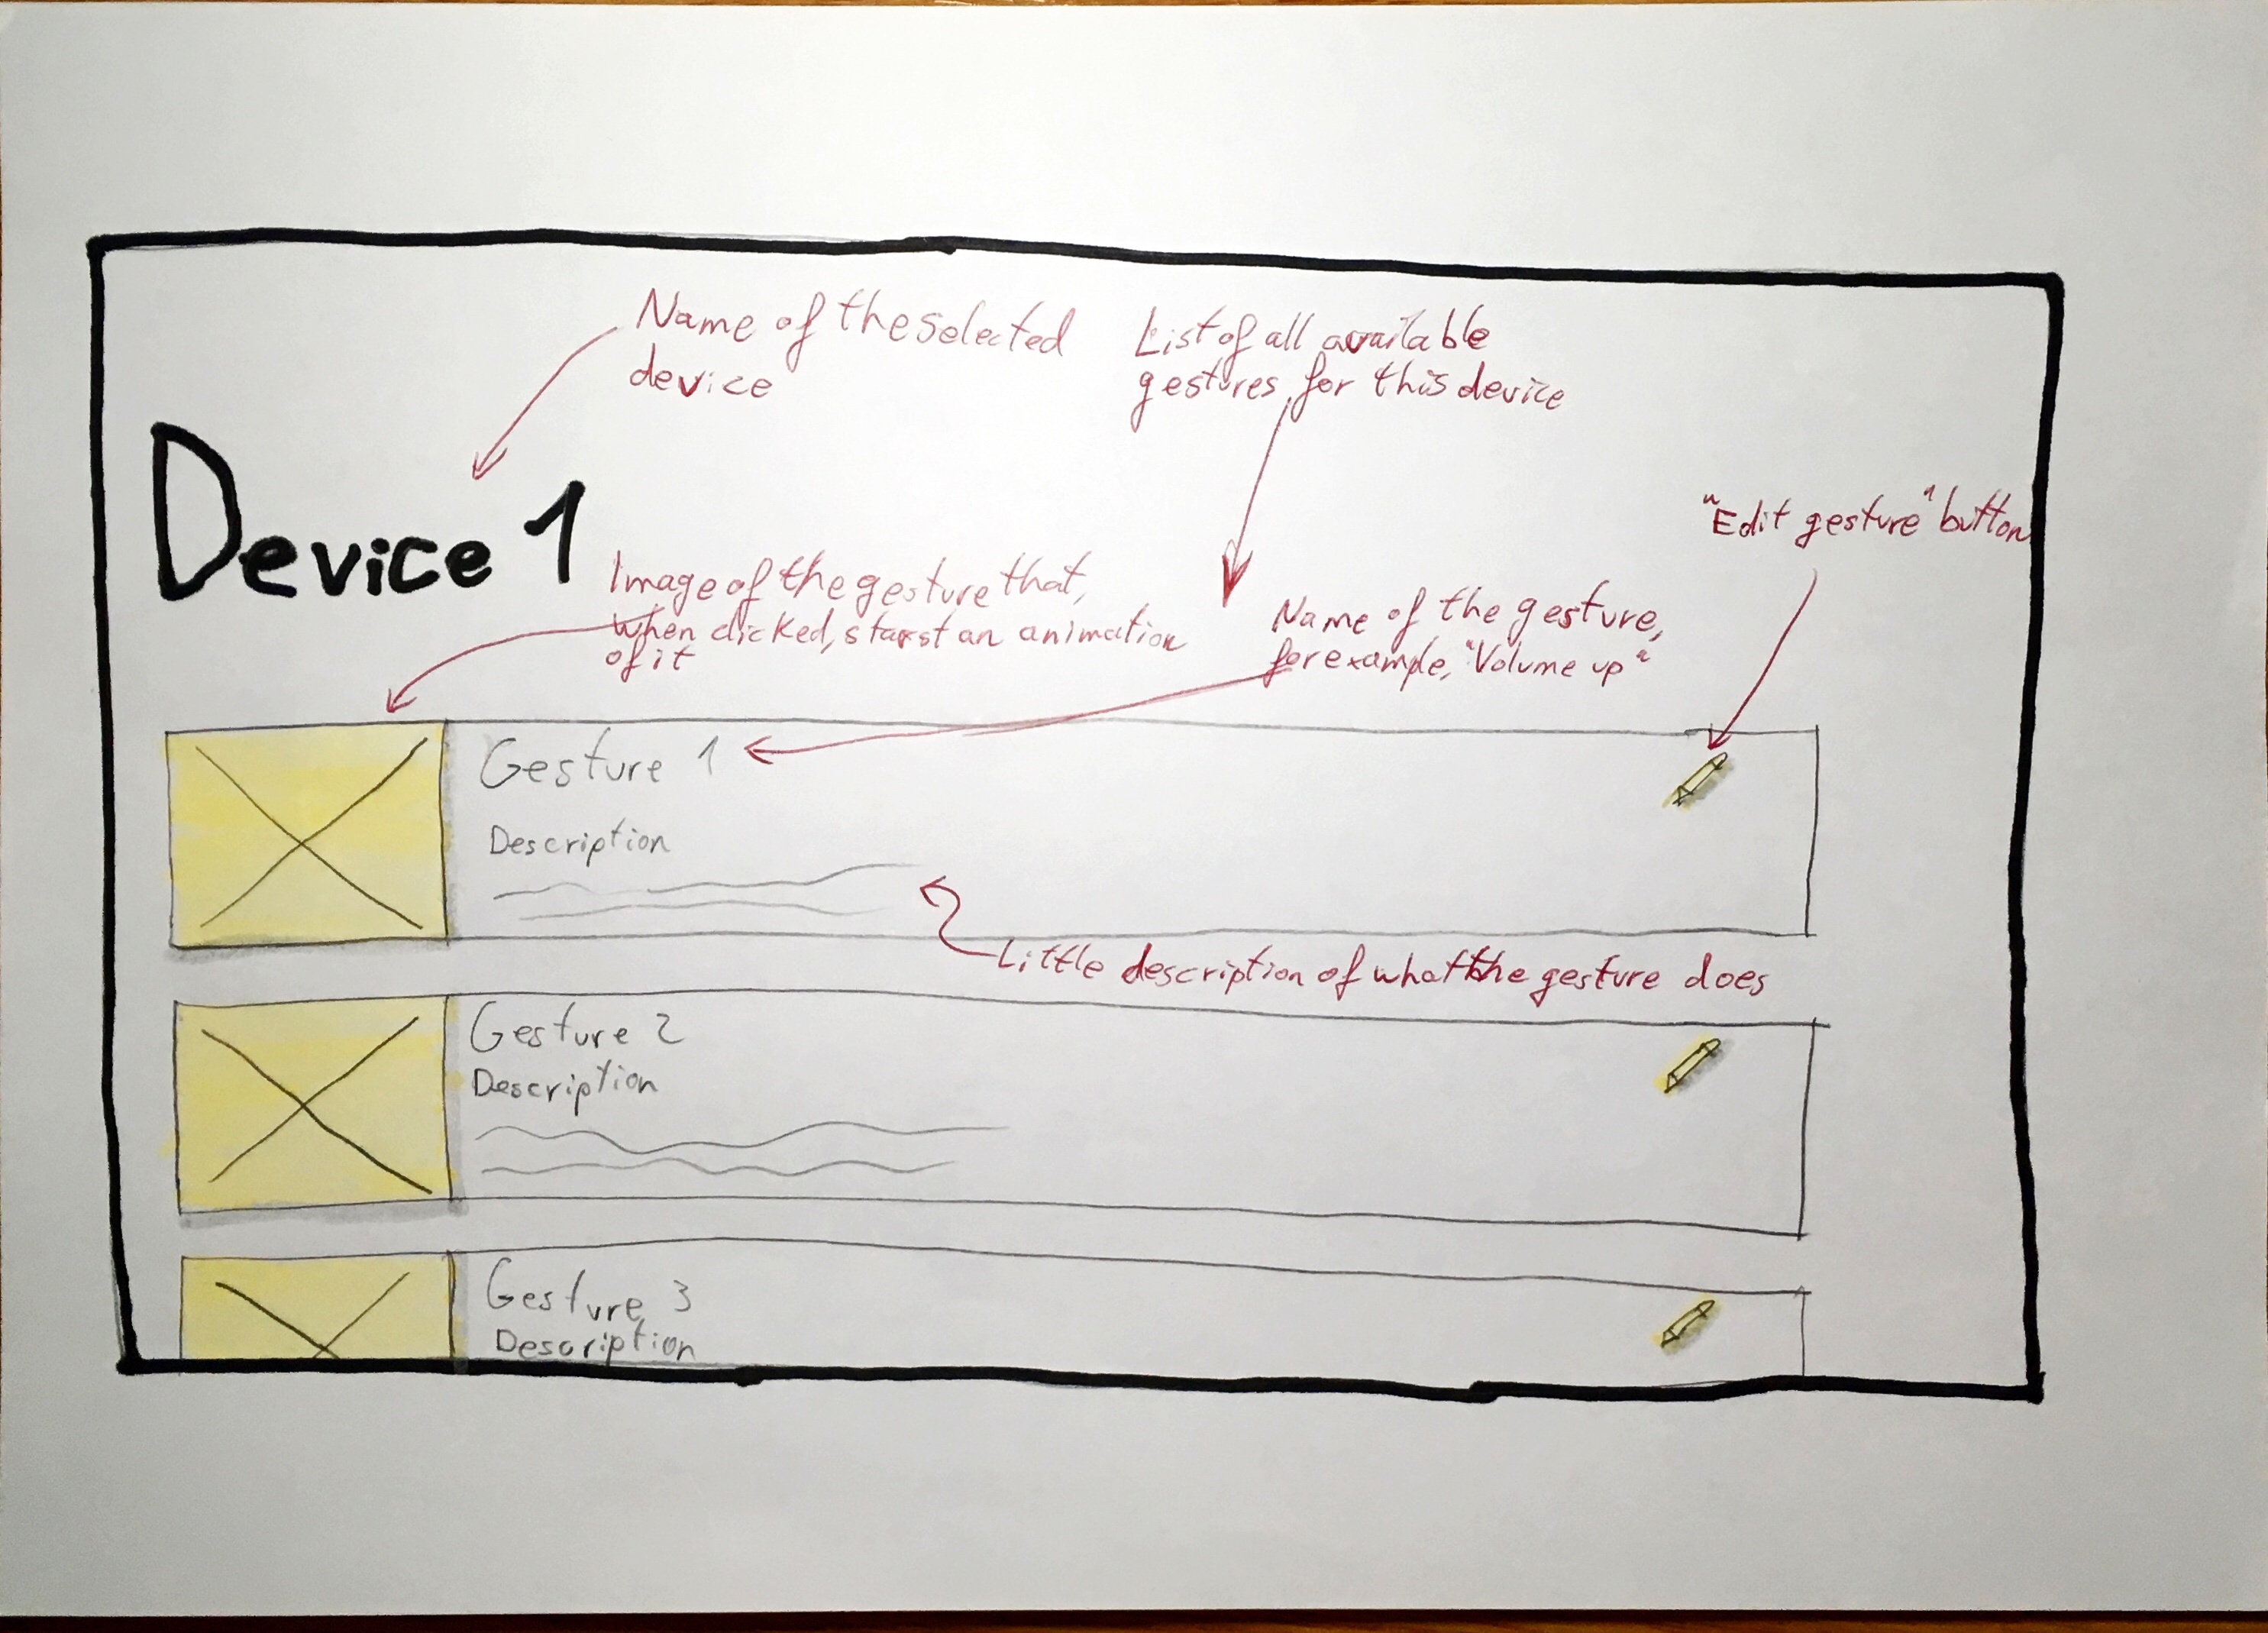 Name of the selected
device
List of all available
gestures for this device
"Edit gesture" button
Device 1
Image of the gesture that,
when clicked, starst an animation
of it
Name of the gesture,
for example, "Volume up"
Gesture 1
Description
Little description of what the gesture does
Gesture 2
Description
Gesture 3
Description